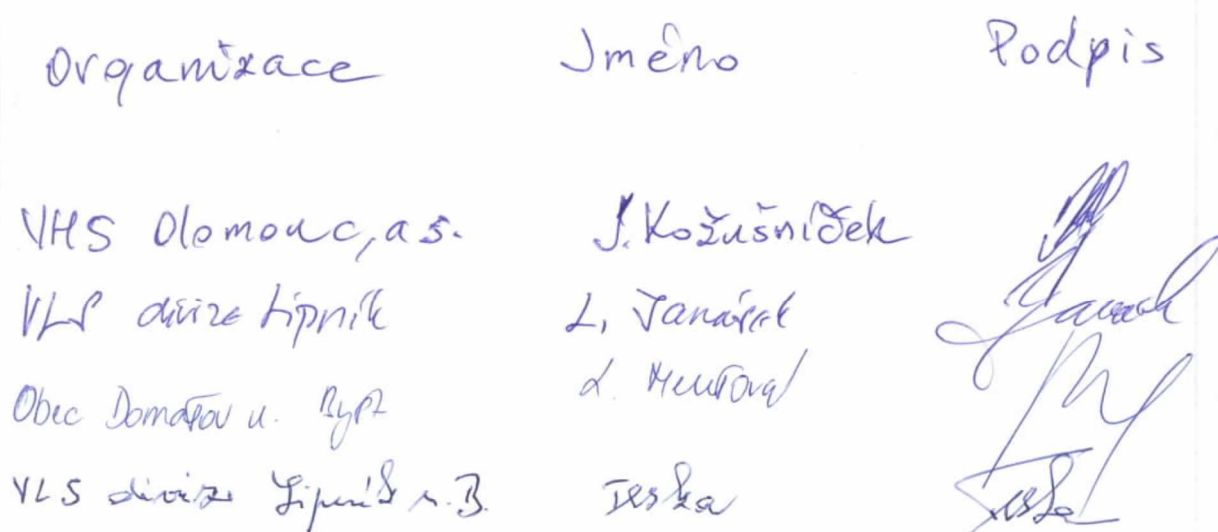 Organizace Jméno Podpis
VHS Olomouc, a.s. J. Kožušníček
VLS divize Lipník L. Janásek
Obec Domašov u. L.
VLS divize Lipník n. B. Teska